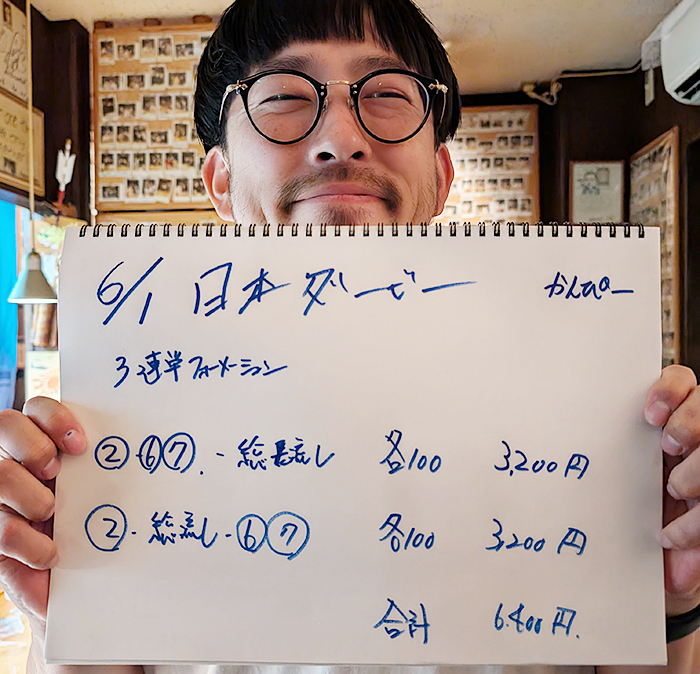 6/1 日本ダービー かんぴー
3連単フォーメーション
②-⑥⑦.-総流し 各100 3,200円
②-総流し-⑥⑦ 各100 3,200円
合計 6,400円.